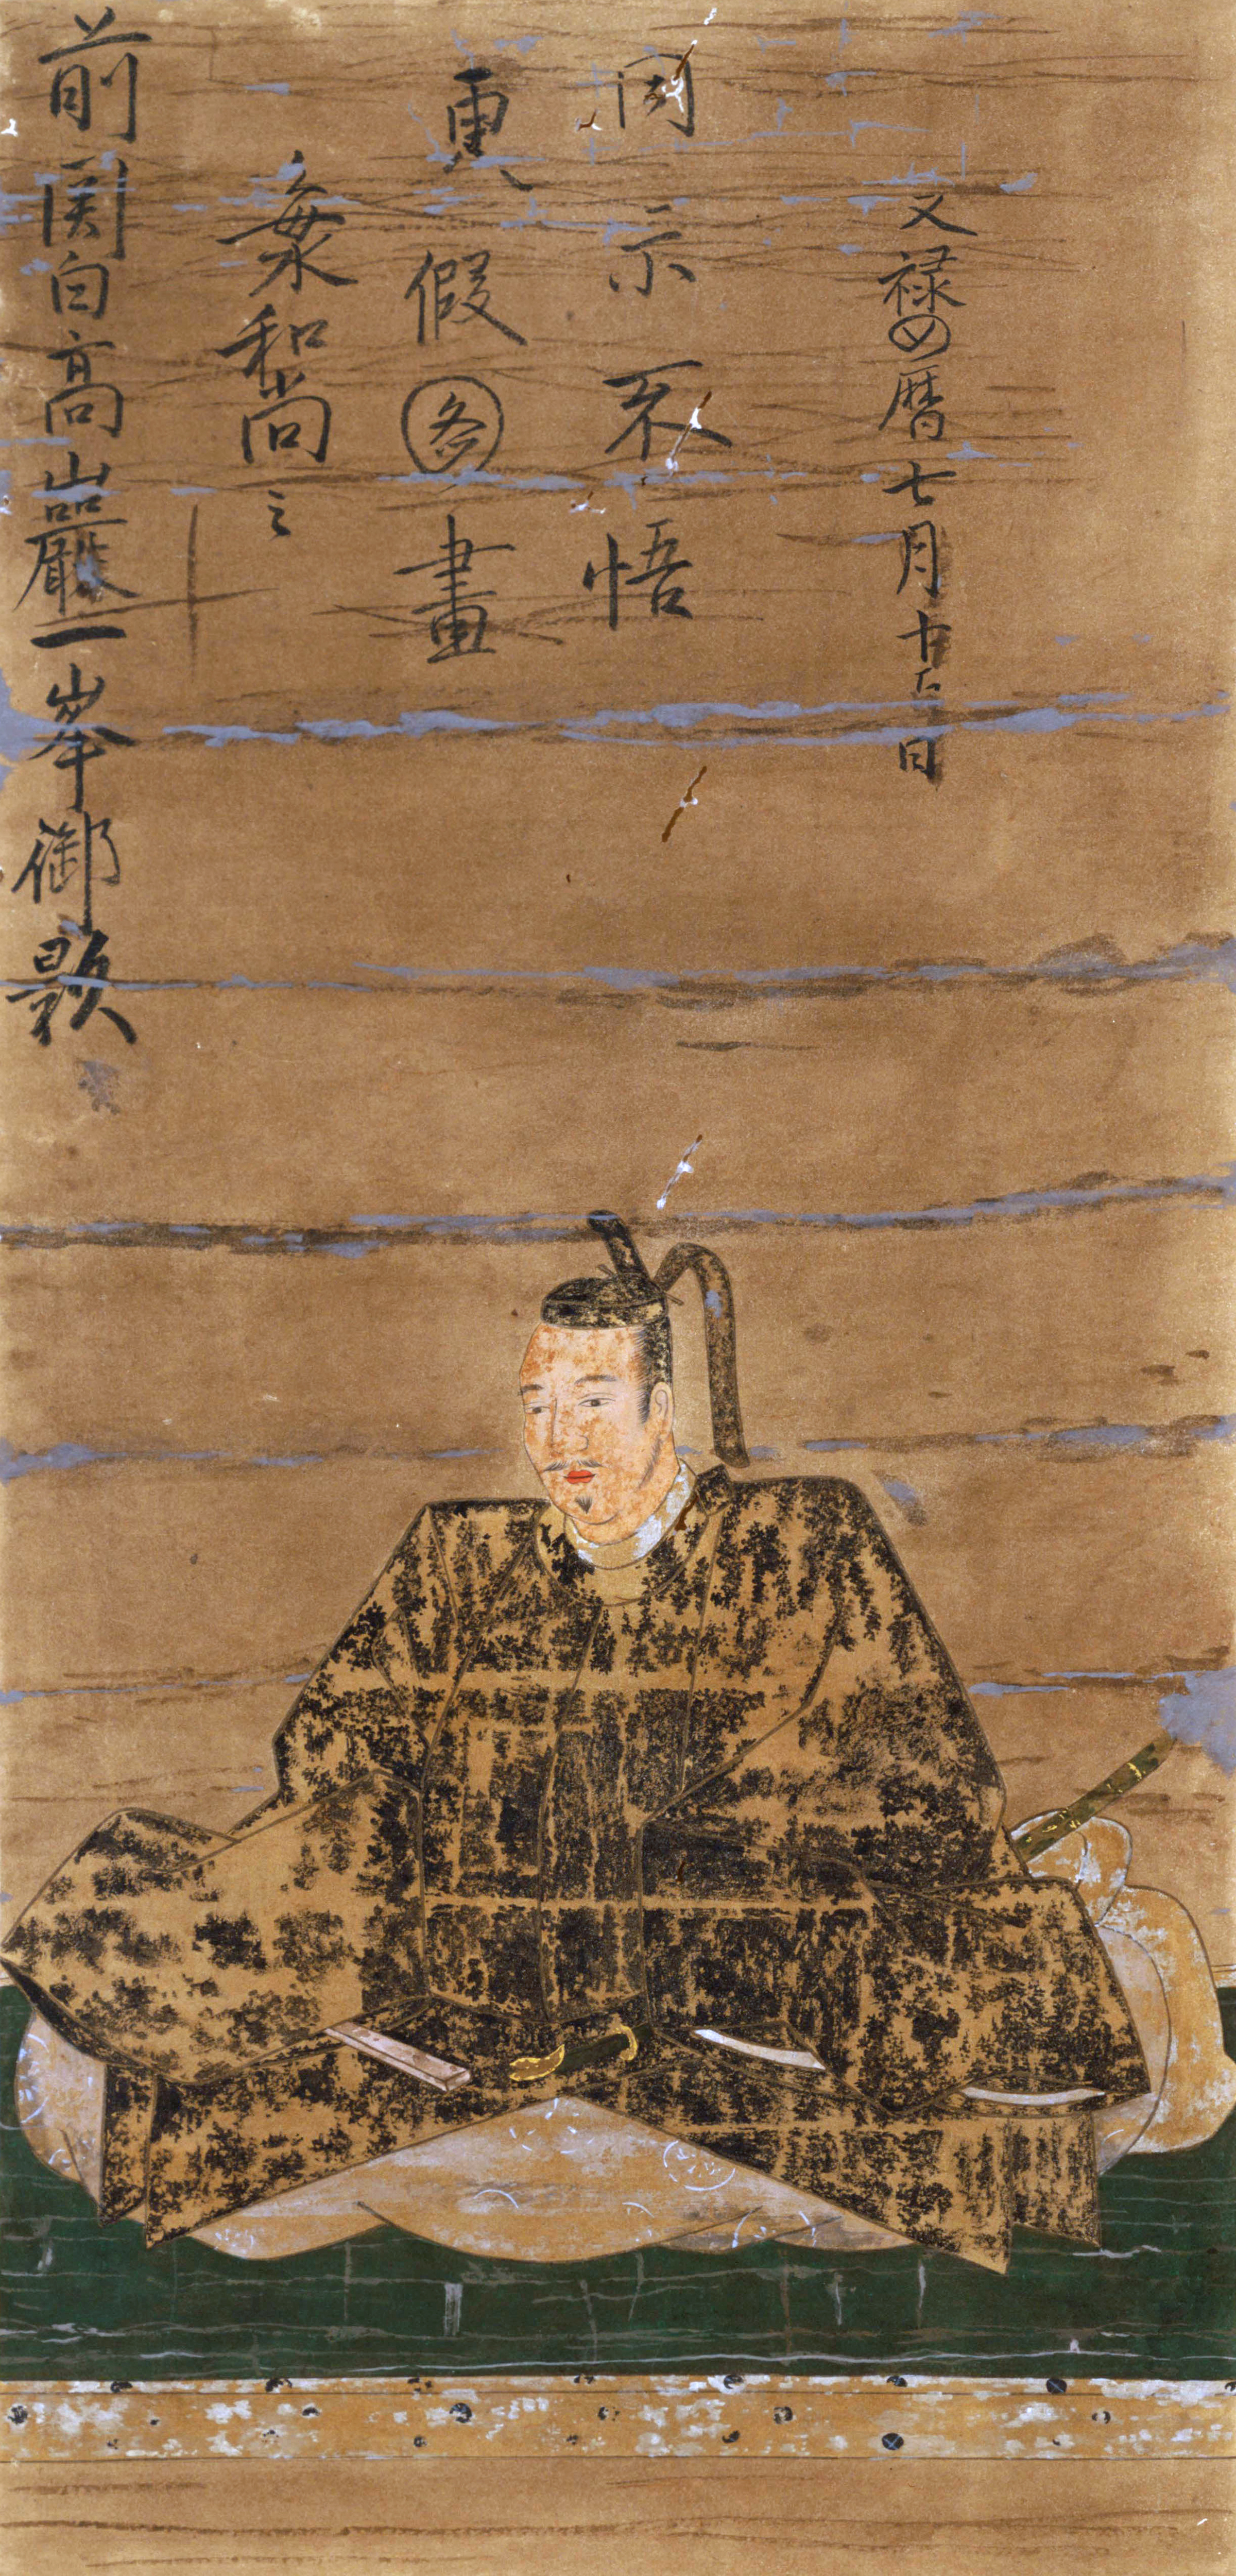 前関白高巌一峯御影
和尚之
更假圖畫
示不悟
文禄四暦七月十五日